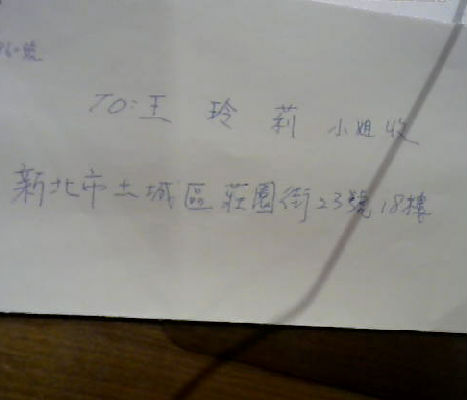 號
TO:王 玲 莉 小姐 收
新北市土城區莊園街23號18樓